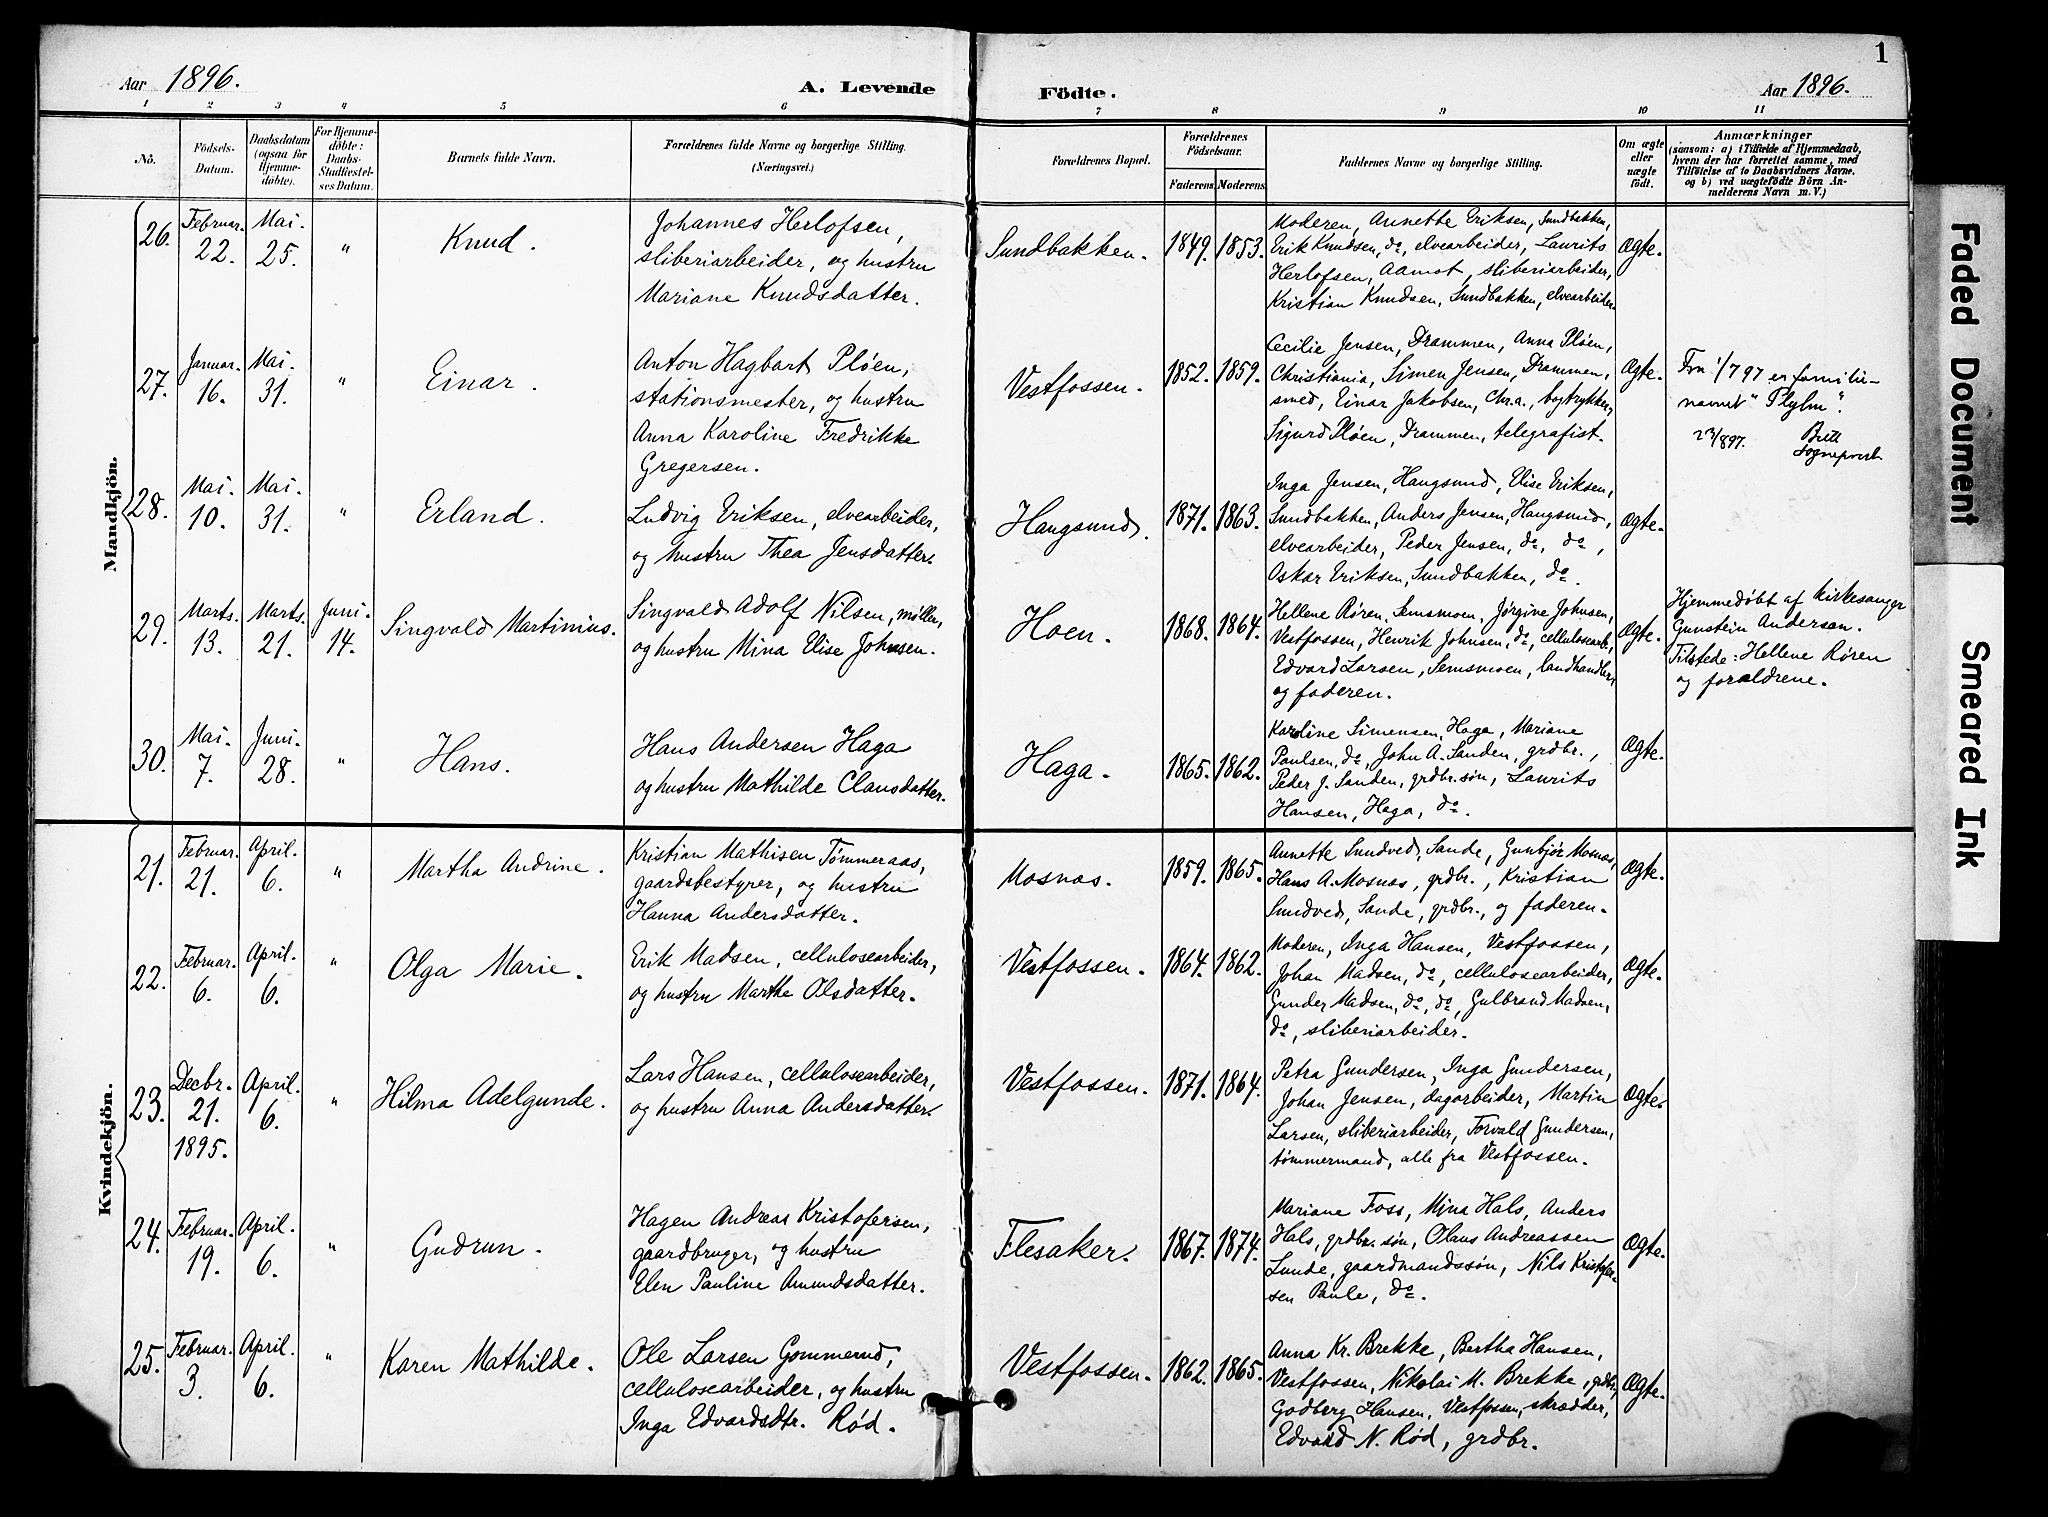 1
Aar 1896.
A. Levende
Födte.
Aar 1896.
1 2 3 4 5 6 7 8 9 10 11
No.
Födsels-
Datum.
Daabsdatum
(ogsaa for
Hjemme-
döbte).
For Hjemme-
döbte:
Daabs-
Stadfæstel-
ses Datum.
Barnets fulde Navn.
Forældrenes fulde Navne og borgerlige Stilling.
(Næringsvei.)
Forældrenes Bopæl.
Forældrenes
Födselsaar.
Faderens. Moderens.
Faddernes Navne og borgerlige Stilling.
Om ægte
eller
uægte
födt.
Anmærkninger
(saasom: a) i Tilfælde af Hjemmedaab,
hvem der har forrettet samme, med
Tilföielse af to Daabsvidners Navne.
og b) ved uægtefödte Börn An-
melderens Navn m. V.)
Mandkjön.
26.
Februar.
22.
Mai.
25.
"
Knud.
Johannes Herlofsen,
sliberiarbeider, og hustru
Mariane Knudsdatter.
Sundbakken.
1849. 1853.
Moderen, Annette Eriksen, Sundbakken,
Erik Knudsen, do, elvearbeider, Laurits
Herlofsen, Aamot, sliberiarbeider,
Kristian Knudsen, Sundbakken, elvearbeider.
Ægte.
27.
Januar.
16.
Mai.
31.
"
Einar.
Anton Hagbart Pløen,
stationsmester, og hustru
Anna Karoline Fredrikke
Gregersen.
Vestfossen.
1852. 1859.
Cecilie Jensen, Drammen, Anna Pløen,
Christiania, Simen Jensen, Drammen,
smed, Einar Jakobsen, Chr.a., bogtrykker,
Sigurd Pløen, Drammen, telegrafist.
Ægte.
Fra 1/7 97 er familie-
navnet
23/897.
Sogneprest.
28.
Mai.
10.
Mai.
31.
"
Erland.
Ludvig Eriksen, elvearbeider,
og hustru Thea Jensdatter.
Haugsund.
1871. 1863.
Inga Jensen, Haugsund, Elise Eriksen,
Sundbakken, Anders Jensen, Haugsund,
elvearbeider, Peder Jensen, do, do,
Oskar Eriksen, Sundbakken, do.
Ægte.
29.
Marts.
13.
Marts.
21.
Juni.
14.
Singvald Martinius.
Singvald Adolf Nilsen, møller,
og hustru Mina Elise Johnsen.
Hoen.
1868. 1864.
Hellene Røren, Semsmoen, Jørgine Johnsen,
Vestfossen, Henrik Johnsen, do, cellulosearb.,
Edvard Larsen, Semsmoen, landhandler,
og faderen.
Ægte.
Hjemmedøbt af kirkesanger
Gunstein Anderson.
Tilstede: Hellene Røren
og forældrene.
30.
Mai.
7.
Juni.
28.
"
Hans.
Hans Andersen Haga
og hustru Mathilde Clausdatter.
Haga.
1865. 1862.
Karoline Simensen, Haga, Mariane
Paulsen, do, John A. Sanden, grdbr.,
Peder J. Sanden, grdbr.søn, Laurits
Hansen, Haga, do.
Ægte.
Kvindekjön.
21.
Februar.
21.
April.
6.
"
Martha Andrine.
Kristian Mathisen Tømmeraas,
gaardsbestyrer, og hustru
Hanna Andersdatter.
Mosnæs.
1859. 1865.
Annette Sundved, Sande, Gunbjør Mosnæs,
Hans A. Mosnæs, grdbr., Kristian
Sundved, Sande, grdbr., og faderen.
Ægte.
22.
Februar.
6.
April.
6.
"
Olga Marie.
Erik Madsen, cellulosearbeider,
og hustru Marthe Olsdatter.
Vestfossen.
1864. 1862.
Moderen, Inga Hansen, Vestfossen,
Johan Madsen, do, cellulosearbeider,
Gunder Madsen, do, do, Gulbrand Madsen,
do, sliberiarbeider.
Ægte.
23.
Decbr.
21.
1895.
April.
6.
"
Hilma Adelgunde.
Lars Hansen, cellulosearbeider,
og hustru Anna Andersdatter.
Vestfossen.
1871. 1864.
Petra Gundersen, Inga Gundersen,
Johan Jensen, dagarbeider, Martin
Larsen, sliberiarbeider, Torvald Gundersen,
tømmermand, alle fra Vestfossen.
Ægte.
24.
Februar.
19.
April.
6.
"
Gudrun.
Hagen Andreas Kristofersen,
gaardbruger, og hustru
Elen Pauline Amundsdatter.
Flesaker.
1867. 1874.
Mariane Foss, Mina Hals, Anders
Hals, grdbr. søn, Olaus Andreassen
Lunde, gaardmandssøn, Nils Kristofer-
sen Paule, do.
Ægte.
25.
Februar.
3.
April.
6.
"
Karen Mathilde.
Ole Larsen Gommerud,
cellulosearbeider, og hustru
Inga Edvardsdtr. Rød.
Vestfossen.
1862. 1865.
Anna Kr. Brekke, Bertha Hansen,
Vestfossen, Nikolai M. Brekke, grdbr.,
Godberg Hansen, Vestfossen, skrædder,
Edvard N. Rød, grdbr.
Ægte.
Faded Document
Smeared Ink